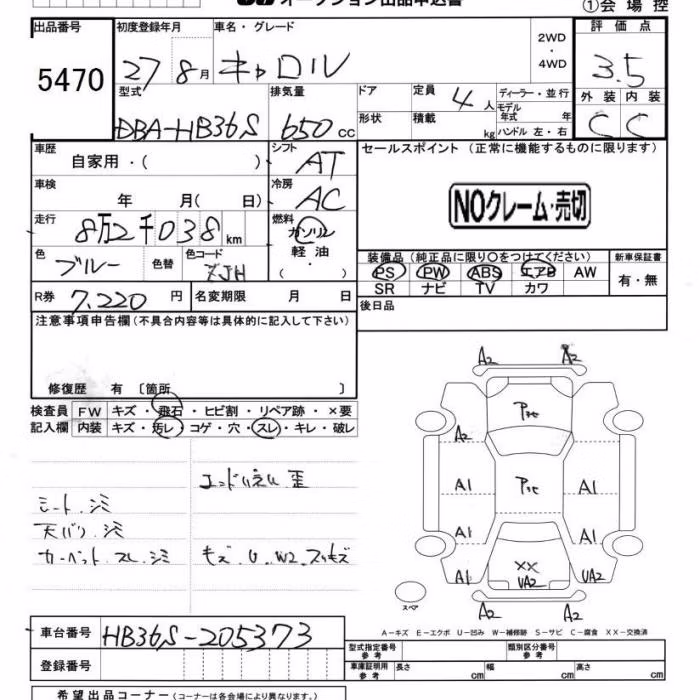 オークション出品申込書 ①会場控
出品番号 初度登録年月 車名・グレード 2WD・4WD 評価点
5470 27 8月 キャロル 3.5
型式 排気量 ドア 定員 4人 ディーラー・並行 外装 内装
モデル年式 年
DBA-HB36S 650cc 形状 積載 kg ハンドル 左・右 C C
車歴 自家用・( ) シフト AT セールスポイント (正常に機能するものに限ります)
車検 年 月( 日) 冷房 AC
NOクレーム・売切
走行 8万2千038km 燃料 ガソリン・軽油・
色 ブルー 色替 色コード ZJH
装備品(純正品に限り○をつけてください) 新車保証書
PS PW ABS エアB AW 有・無
SR ナビ TV カワ
R券 7,220円 名変期限 月 日 後日品
注意事項申告欄(不具合内容等は具体的に記入して下さい)
修復歴 有 〔箇所 〕
検査員 FW キズ・飛石・ヒビ割・リペア跡・×要
記入欄 内装 キズ・汚レ・コゲ・穴・スレ・キレ・破レ
シート.シミ
天バリ.シミ
カーペット.スレ.シミ
A2 A2
A2
A1 A1
A1 A1
A1 XX UA2 UA2
A2 A2
スペア
A-キズ E-エクボ U-凹み W-補修跡 S-サビ C-腐食 XX-交換済
車台番号 HB36S-205373
登録番号
型式指定番号 参考 類別区分番号 参考
車庫証明用 参考 長さ cm 幅 cm 高さ cm
希望出品コーナー(コーナーは各会場により異なります。)